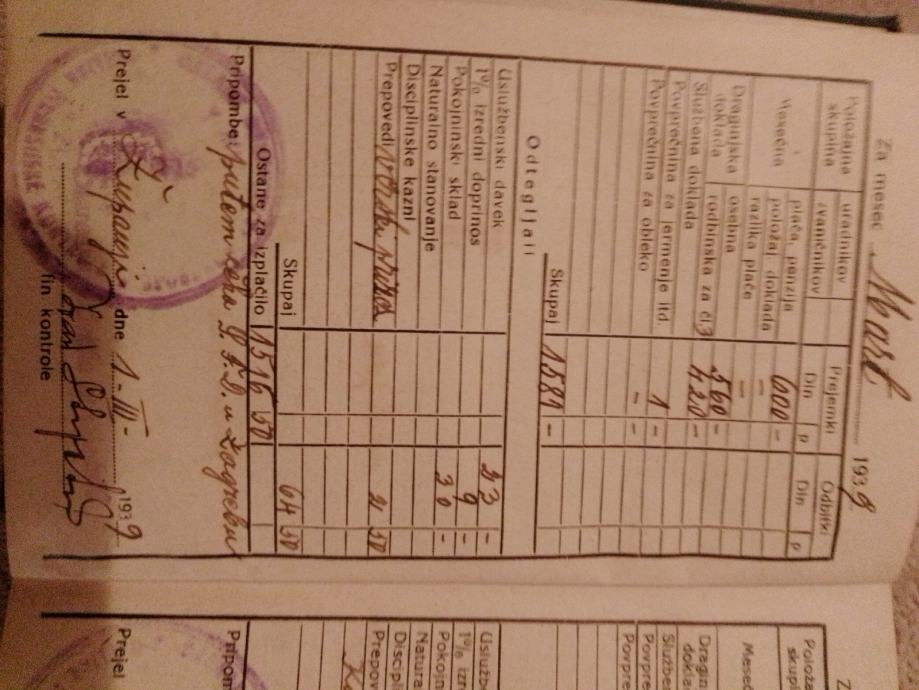 Za mesec Mart 1939
Položajna skupina uradnikov zvaničnikov Prejemki Odbitki
Din p Din p
Mesečna plača, penzija 600 -
položaj. doklada —
razlika plače —
Draginjska doklada osebna 560 -
rodbinska za čl. 3 420 -
Službena doklada
Povprečnina za jermenje itd. 1 -
Povprečnina za obleko - -
Skupaj 1581 -
Odtegljaji
Uslužbenski davek 23 -
1% izredni doprinos 9 -
Pokojninski sklad 30 -
Naturalno stanovanje
Disciplinske kazni
Prepovedi 2 50
Skupaj 64 50
Ostane za izplačilo 1516 50
Pripombe: putem čeka u Zagrebu
Prejel v Županji dne 1-III- 1939
fin kontrole
Polož
skupi
Meseč
Dragin
dokla
Službe
Povpre
Povpre
Uslužbe
1% izre
Pokojn
Natura
Discipl
Prepov
Pripom
Prejel